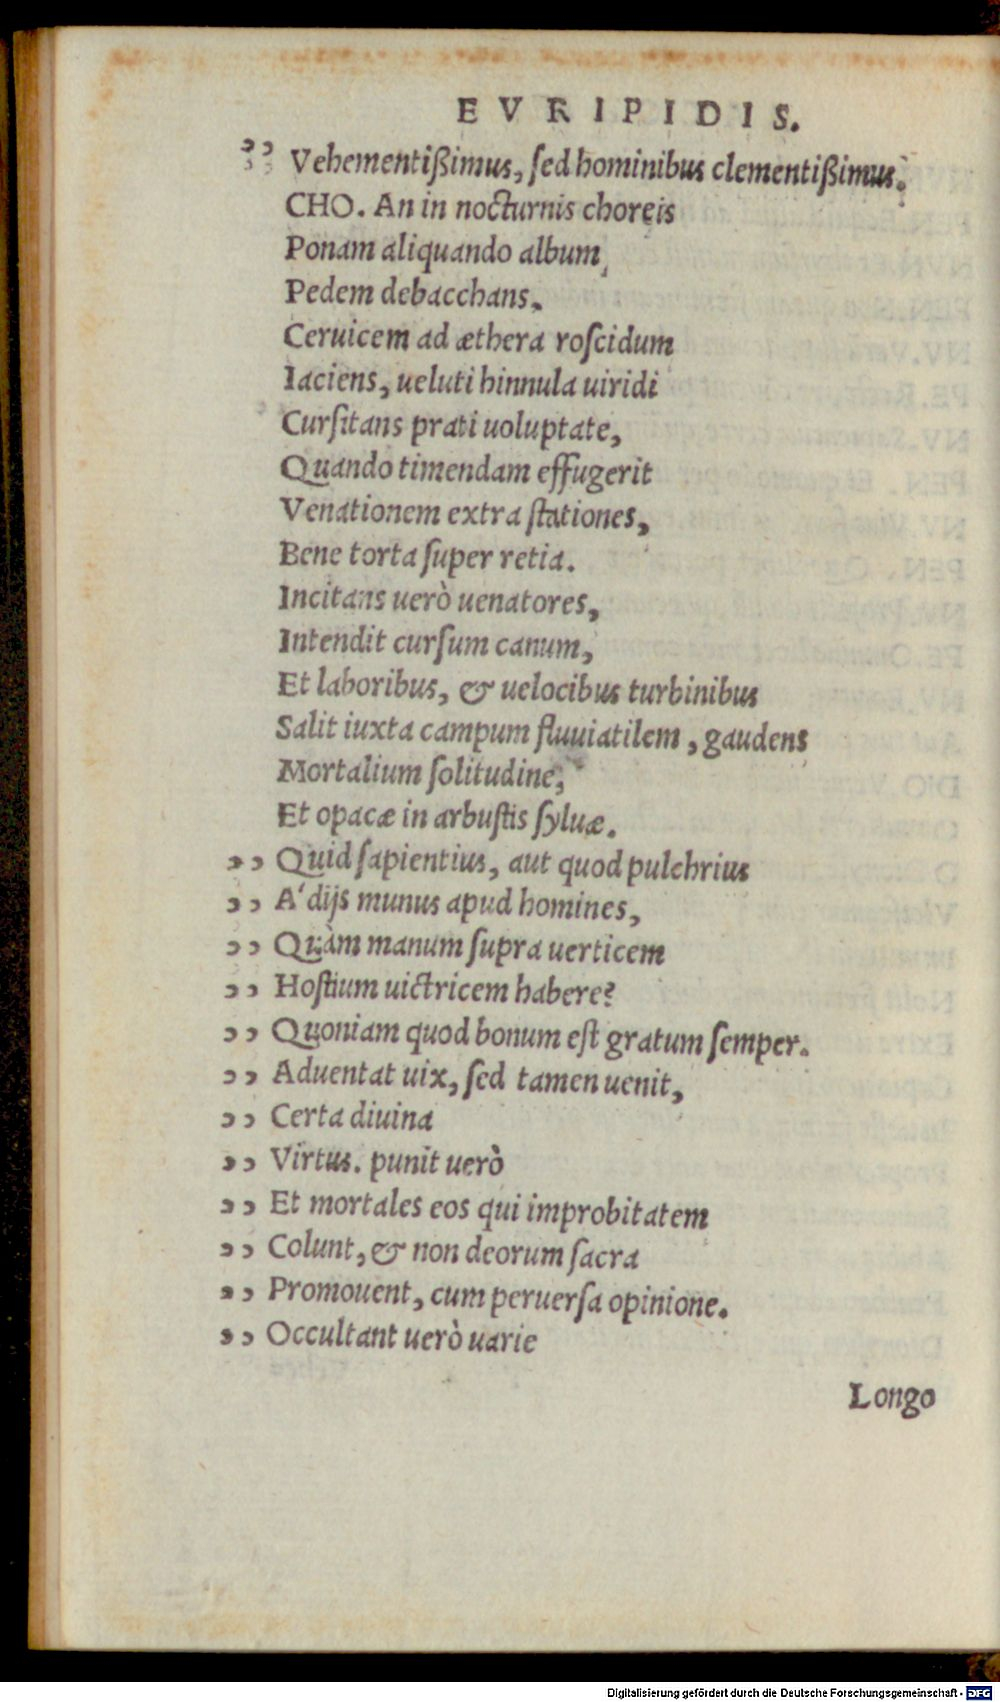 EVRIPIDIS.
,, Vehementißimus, ſed hominibus clementißimus.
CHO. An in nocturnis choreis
Ponam aliquando album
Pedem debacchans,
Ceruicem ad æthera roſcidum
Iaciens, ueluti hinnula uiridi
Curſitans prati uoluptate,
Quando timendam effugerit
Venationem extra ſtationes,
Bene torta ſuper retia.
Incitans uerò uenatores,
Intendit curſum canum,
Et laboribus, & uelocibus turbinibus
Salit iuxta campum fluuiatilem, gaudens
Mortalium ſolitudine,
Et opacæ in arbuſtis ſyluæ.
,, Quid ſapientius, aut quod pulchrius
,, A' dijs munus apud homines,
,, Quàm manum ſupra uerticem
,, Hoſtium uictricem habere?
,, Quoniam quod bonum eſt gratum ſemper.
,, Aduentat uix, ſed tamen uenit,
,, Certa diuina
,, Virtus. punit uerò
,, Et mortales eos qui improbitatem
,, Colunt, & non deorum ſacra
,, Promouent, cum peruerſa opinione.
,, Occultant uerò uarie
Longo
Digitalisierung gefördert durch die Deutsche Forschungsgemeinschaft - DFG